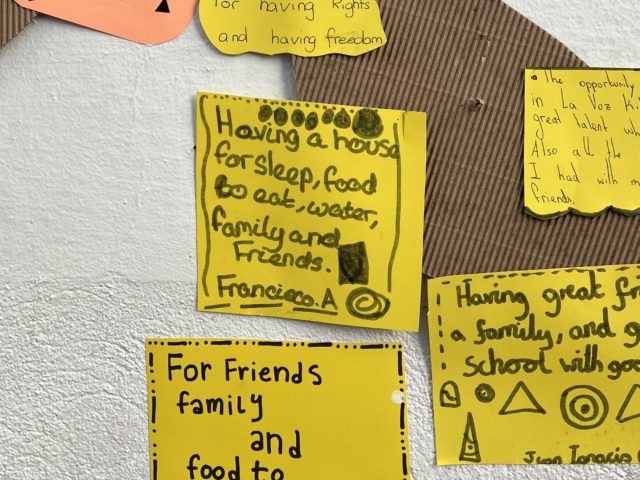 for having Rights
and having freedom
The opportunity
in La Voz Ki
great talent wh
Also all the
I had with m
friends.
Having a house
for sleep, food
to eat, water,
family and
Friends.
Francisco.A
Having great fri
a family, and g
school with goo
Juan Ignacio
For Friends
family
and
food to